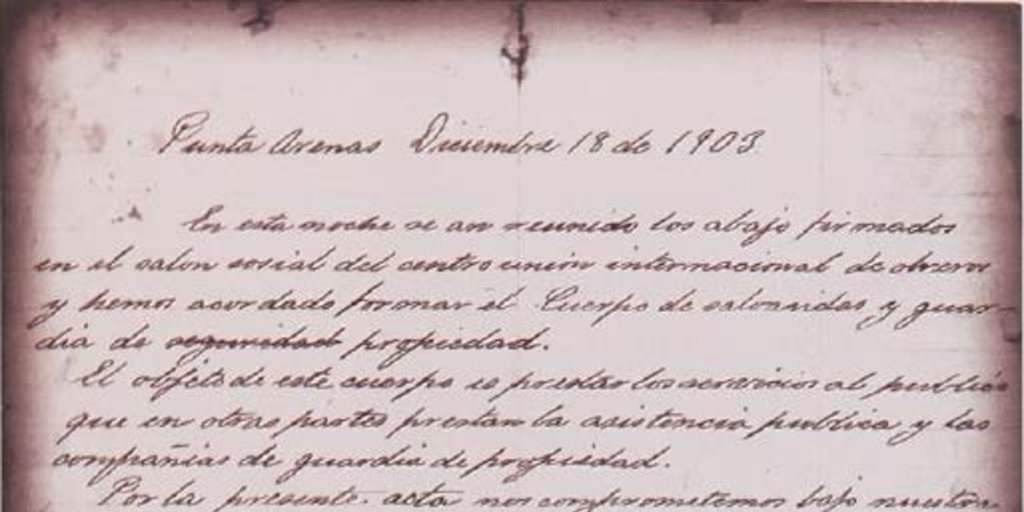 Punta Arenas Diciembre 18 de 1903.
En esta noche se an reunido los abajo firmados
en el salon social del centro union internacional de obreros
y hemos acordado formar el Cuerpo de salvavidas y guar-
dia de seguridad propiedad.
El objeto de este cuerpo es prestar los servicios al publico
que en otras partes prestan la asistencia publica y las
compañias de guardia de propiedad.
Por la presente acta nos comprometemos bajo nuestra